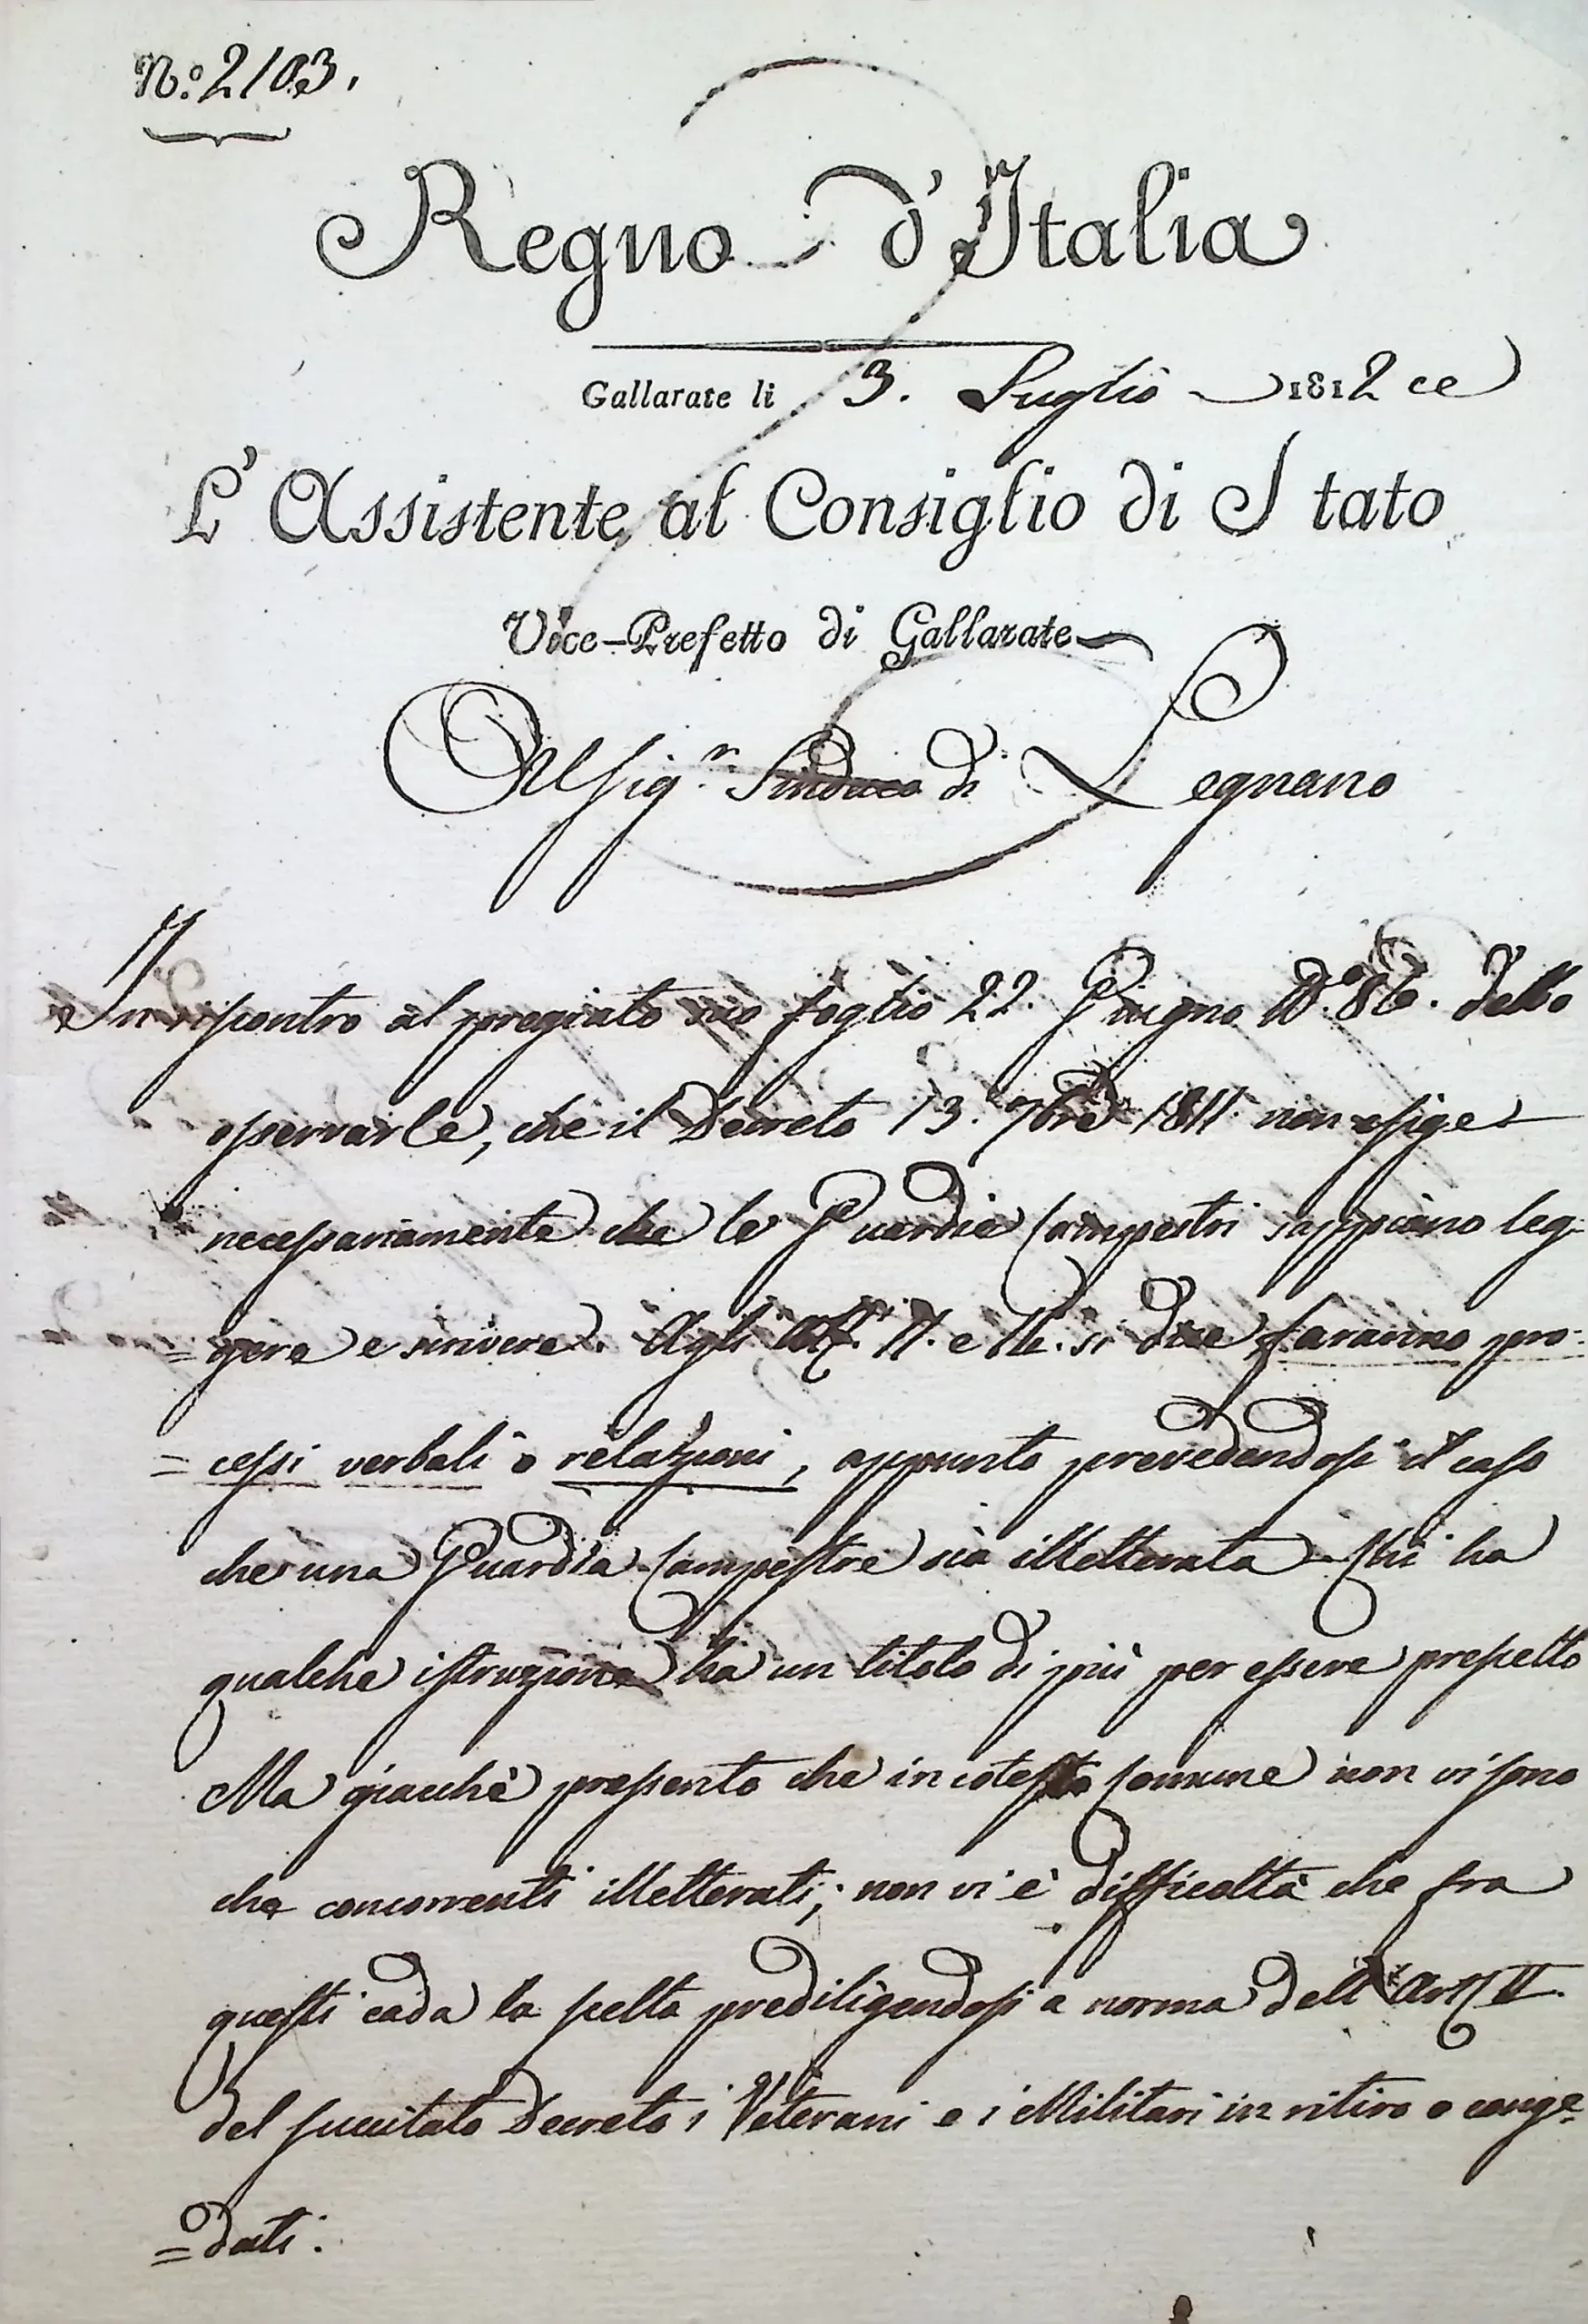 N.° 2103.
Regno d'Italia
Gallarate li 3. Luglio 1812 ce
L'Assistente al Consiglio di Stato
Vice-Prefetto di Gallarate
Al Sig.r Sindaco di Legnano
In riscontro al pregiato suo foglio 22. Giugno N.° 86. debbo
osservarle, che il Decreto 13. 7bre 1811 non esige
necessariamente che le Guardie Campestri sappiano leg-
=gere e scrivere. Agli Art. 11. e 16. si dice faranno pro-
=cessi verbali o relazioni, appunto prevedendosi il caso
che una Guardia Campestre sia illetterata - Chi ha
qualche istruzione ha un titolo di più per essere prescelto
Ma giacchè presento che in cotesta Comune non vi sono
che concorrenti illetterati; non vi è difficoltà che fra
questi cada la scelta prediligendosi a norma dell'Art. II.
del succitato Decreto i Veterani e i Militari in ritiro o conge-
=dati.